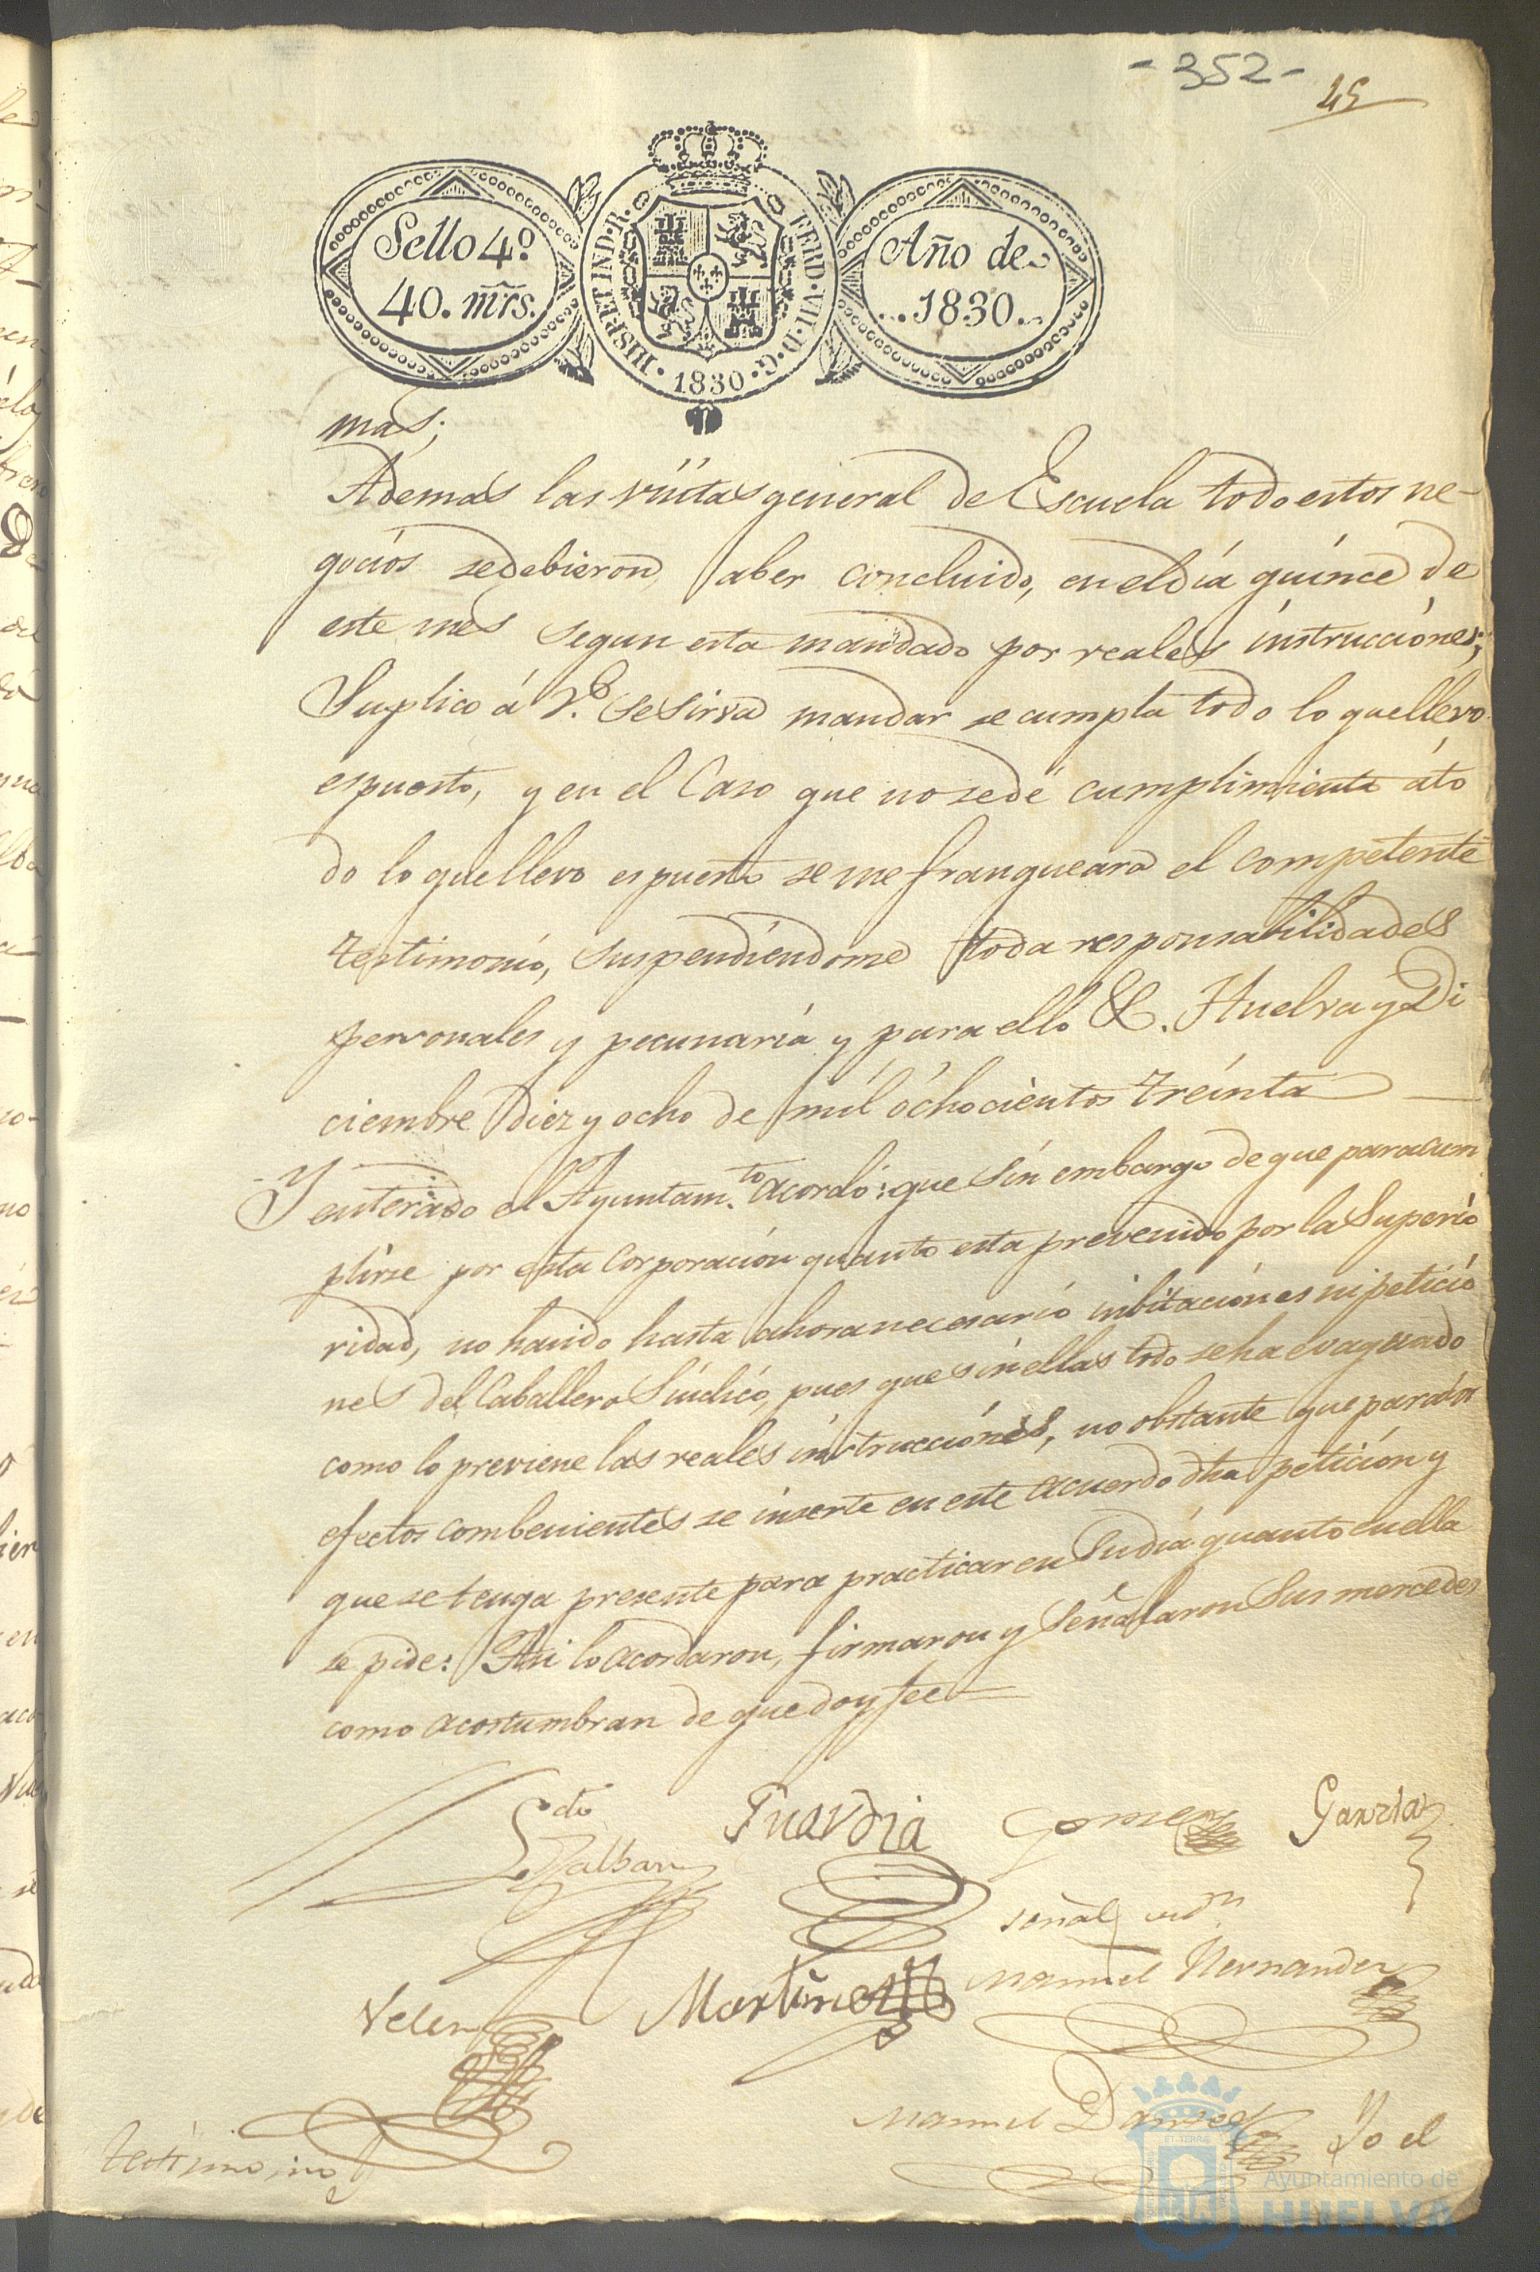 -352-
45
Sello 4.º
40. mrs.
HISP. ET IND. R. FERD. VII. D. G.
1830
Año de
1830
mas;
Ademas las visitas general de Escuela todo estos ne-
gocios se debieron aber concluido, en el día quince de
este mes segun esta mandado por reales instrucciones;
Suplico á V. se sirva mandar se cumpla todo lo que llevo
espuesto, y en el Caso que no se dé cumplimiento áto
do lo que llevo espuesto se me franqueara el competente
testimonio, suspendiendome toda responsabilidades
personales y pecunaria y para ello &. Huelva y Di
ciembre diez y ocho de mil ochocientos treinta
Y enterado el Ayuntam.to acordó: que sin embargo de que para cum
plirse por esta Corporacion quanto esta prevenido por la Superio
ridad, no haido hasta ahora necesario inbitaciónes ni peticio
nes del Caballero Sindico, pues que sin ellas todo se ha evaquado
como lo previene las reales instrucciónes, no obstante que para los
efectos combenientes se inserte en este acuerdo dha petición y
que se tenga presente para practicar en Su dia quanto en ella
se pide: Asi lo acordaron, firmaron y Señalaron Sus mercedes
como acostumbran de que doy fee
Guardia Gomez Garzia
señal
Velez Martinez Manuel Hernandez
Manuel
Yo el
testimonio
Ayuntamiento de
HUELVA